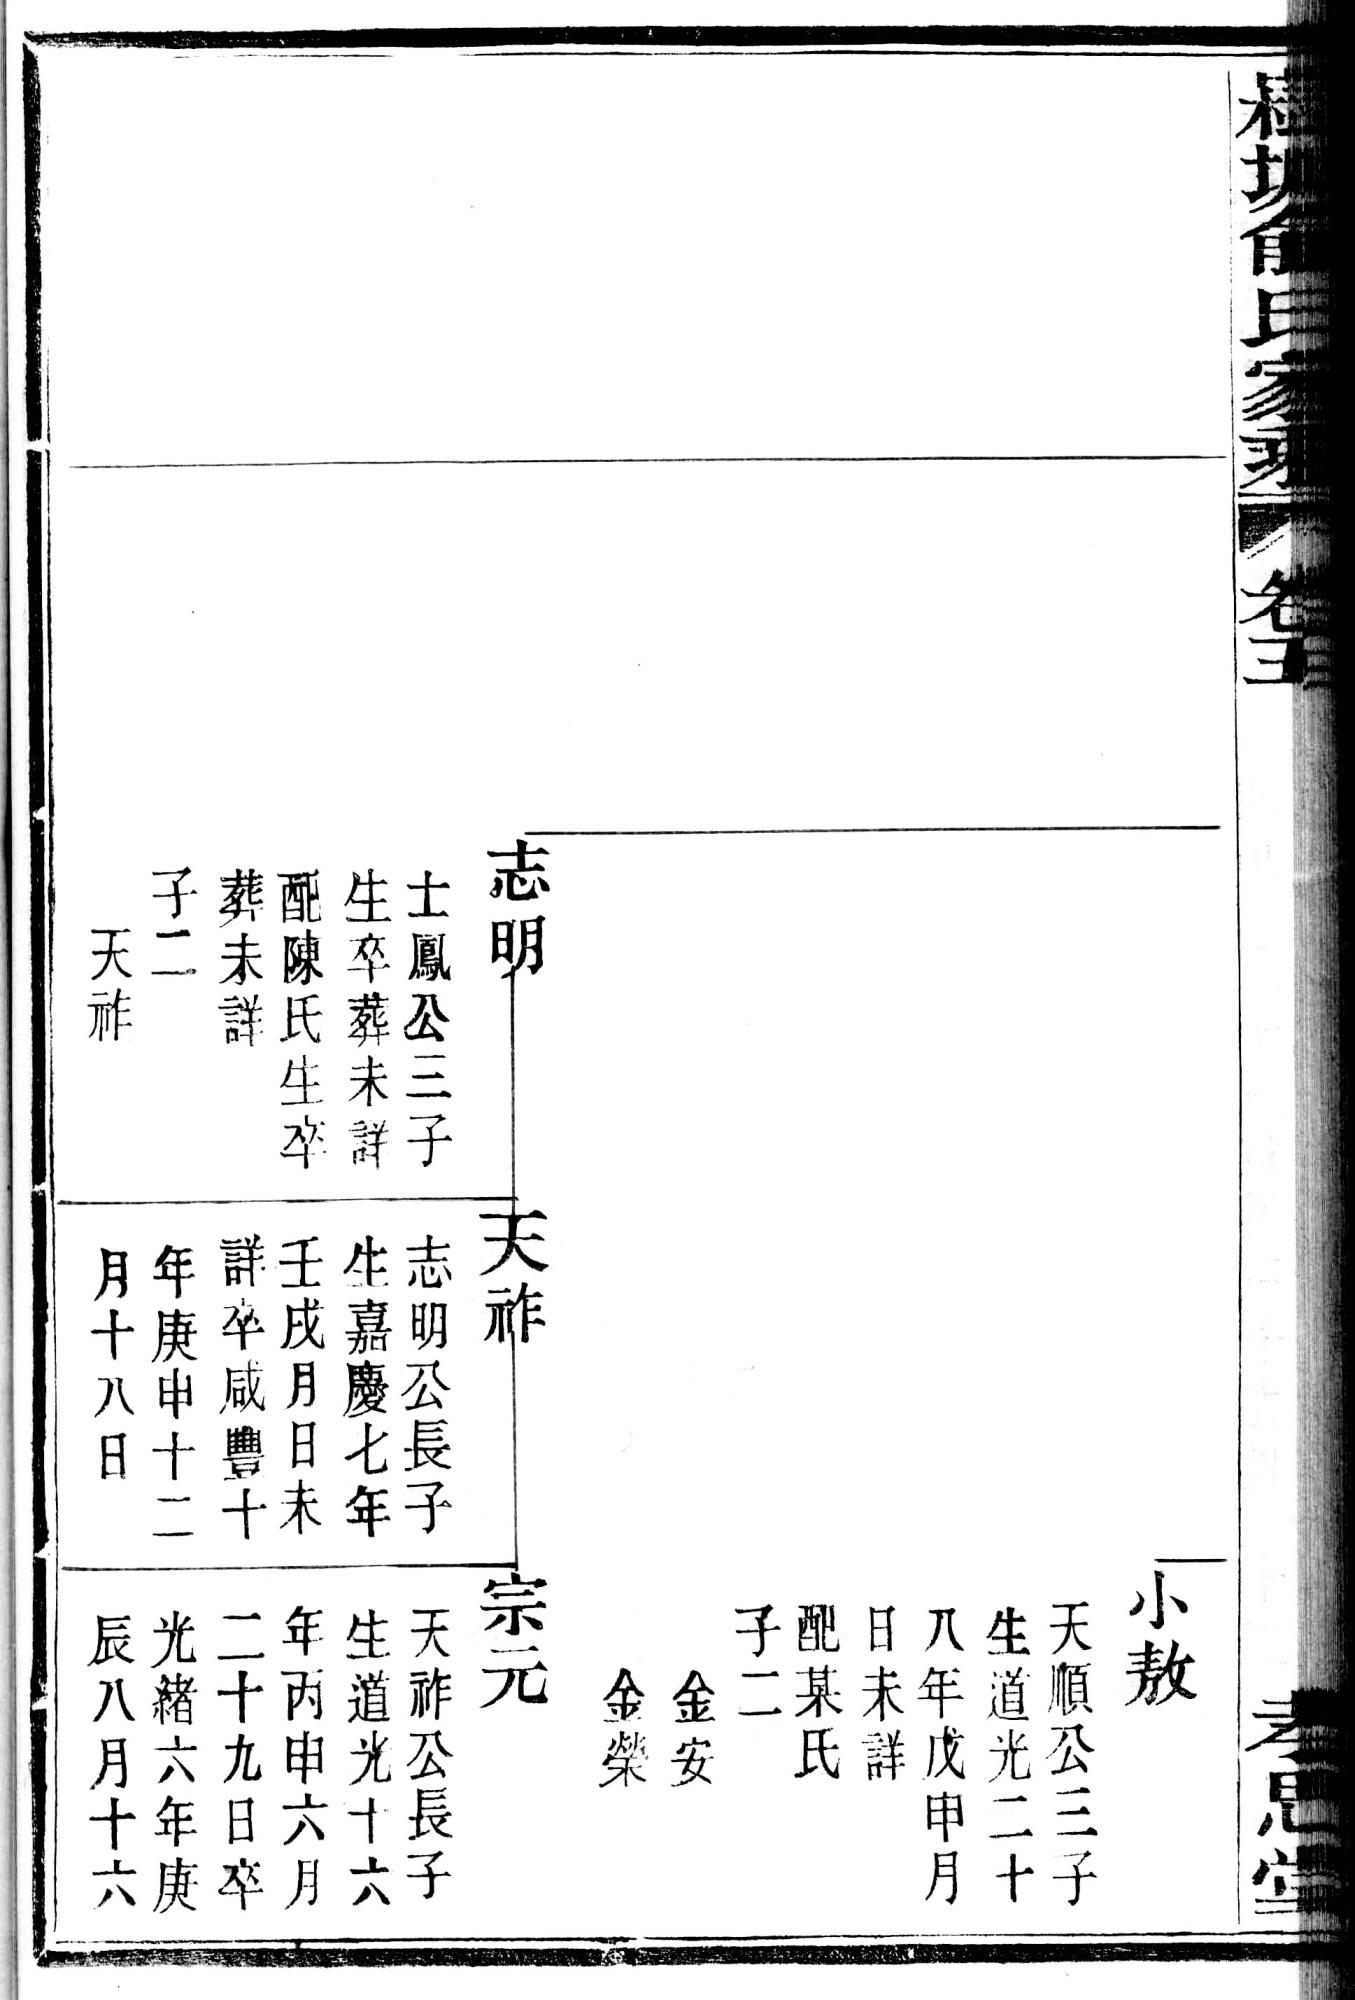 俞氏家乘
卷五
孝思堂
志明
士鳳公三子
生卒葬未詳
配陳氏生卒
葬未詳
子二
天祚
天祚
志明公長子
生嘉慶七年
壬戌月日未
詳卒咸豐十
年庚申十二
月十八日
小敖
天順公三子
生道光二十
八年戊申月
日未詳
配某氏
子二
金安
金榮
宗元
天祚公長子
生道光十六
年丙申六月
二十九日卒
光緒六年庚
辰八月十六